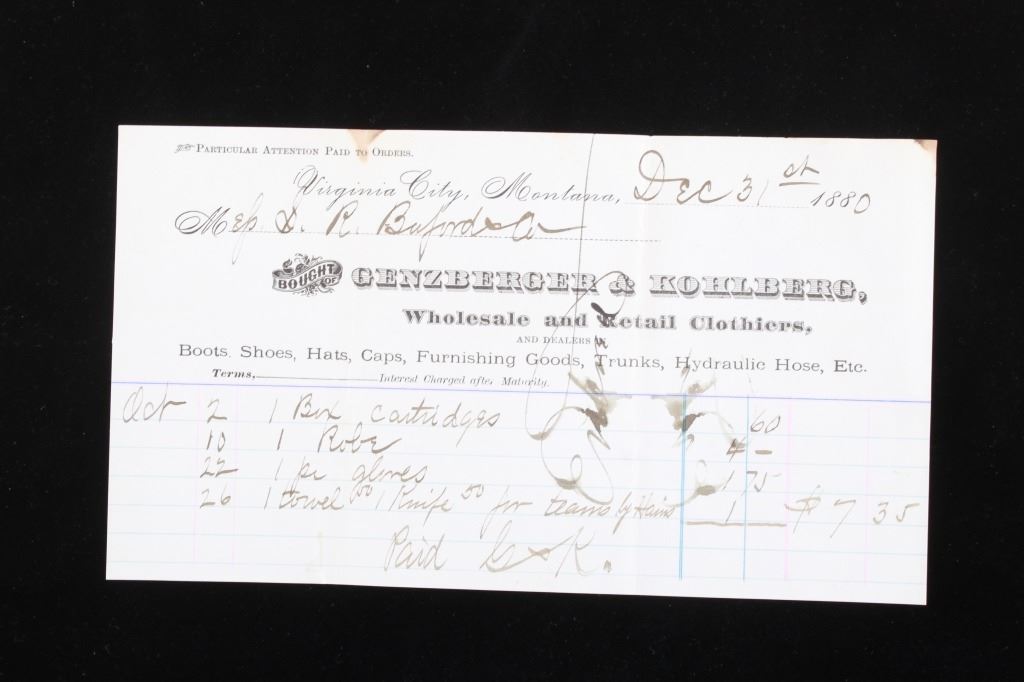 Particular Attention Paid to Orders.
Virginia City, Montana, Dec 31st 1880
Mess. S. R. Buford & Co
BOUGHT OF GENZBERGER & KOHLBERG,
Wholesale and Retail Clothiers,
AND DEALERS
Boots. Shoes, Hats, Caps, Furnishing Goods, Trunks, Hydraulic Hose, Etc.
Terms, Interest Charged after Maturity.
Oct 2 1 Box Cartridges 60
10 1 Robe 4 –
22 1 pr gloves 1 75
26 1 towel 50 1 Knife 50 for teams by 1 $ 7 35
Paid G & K.